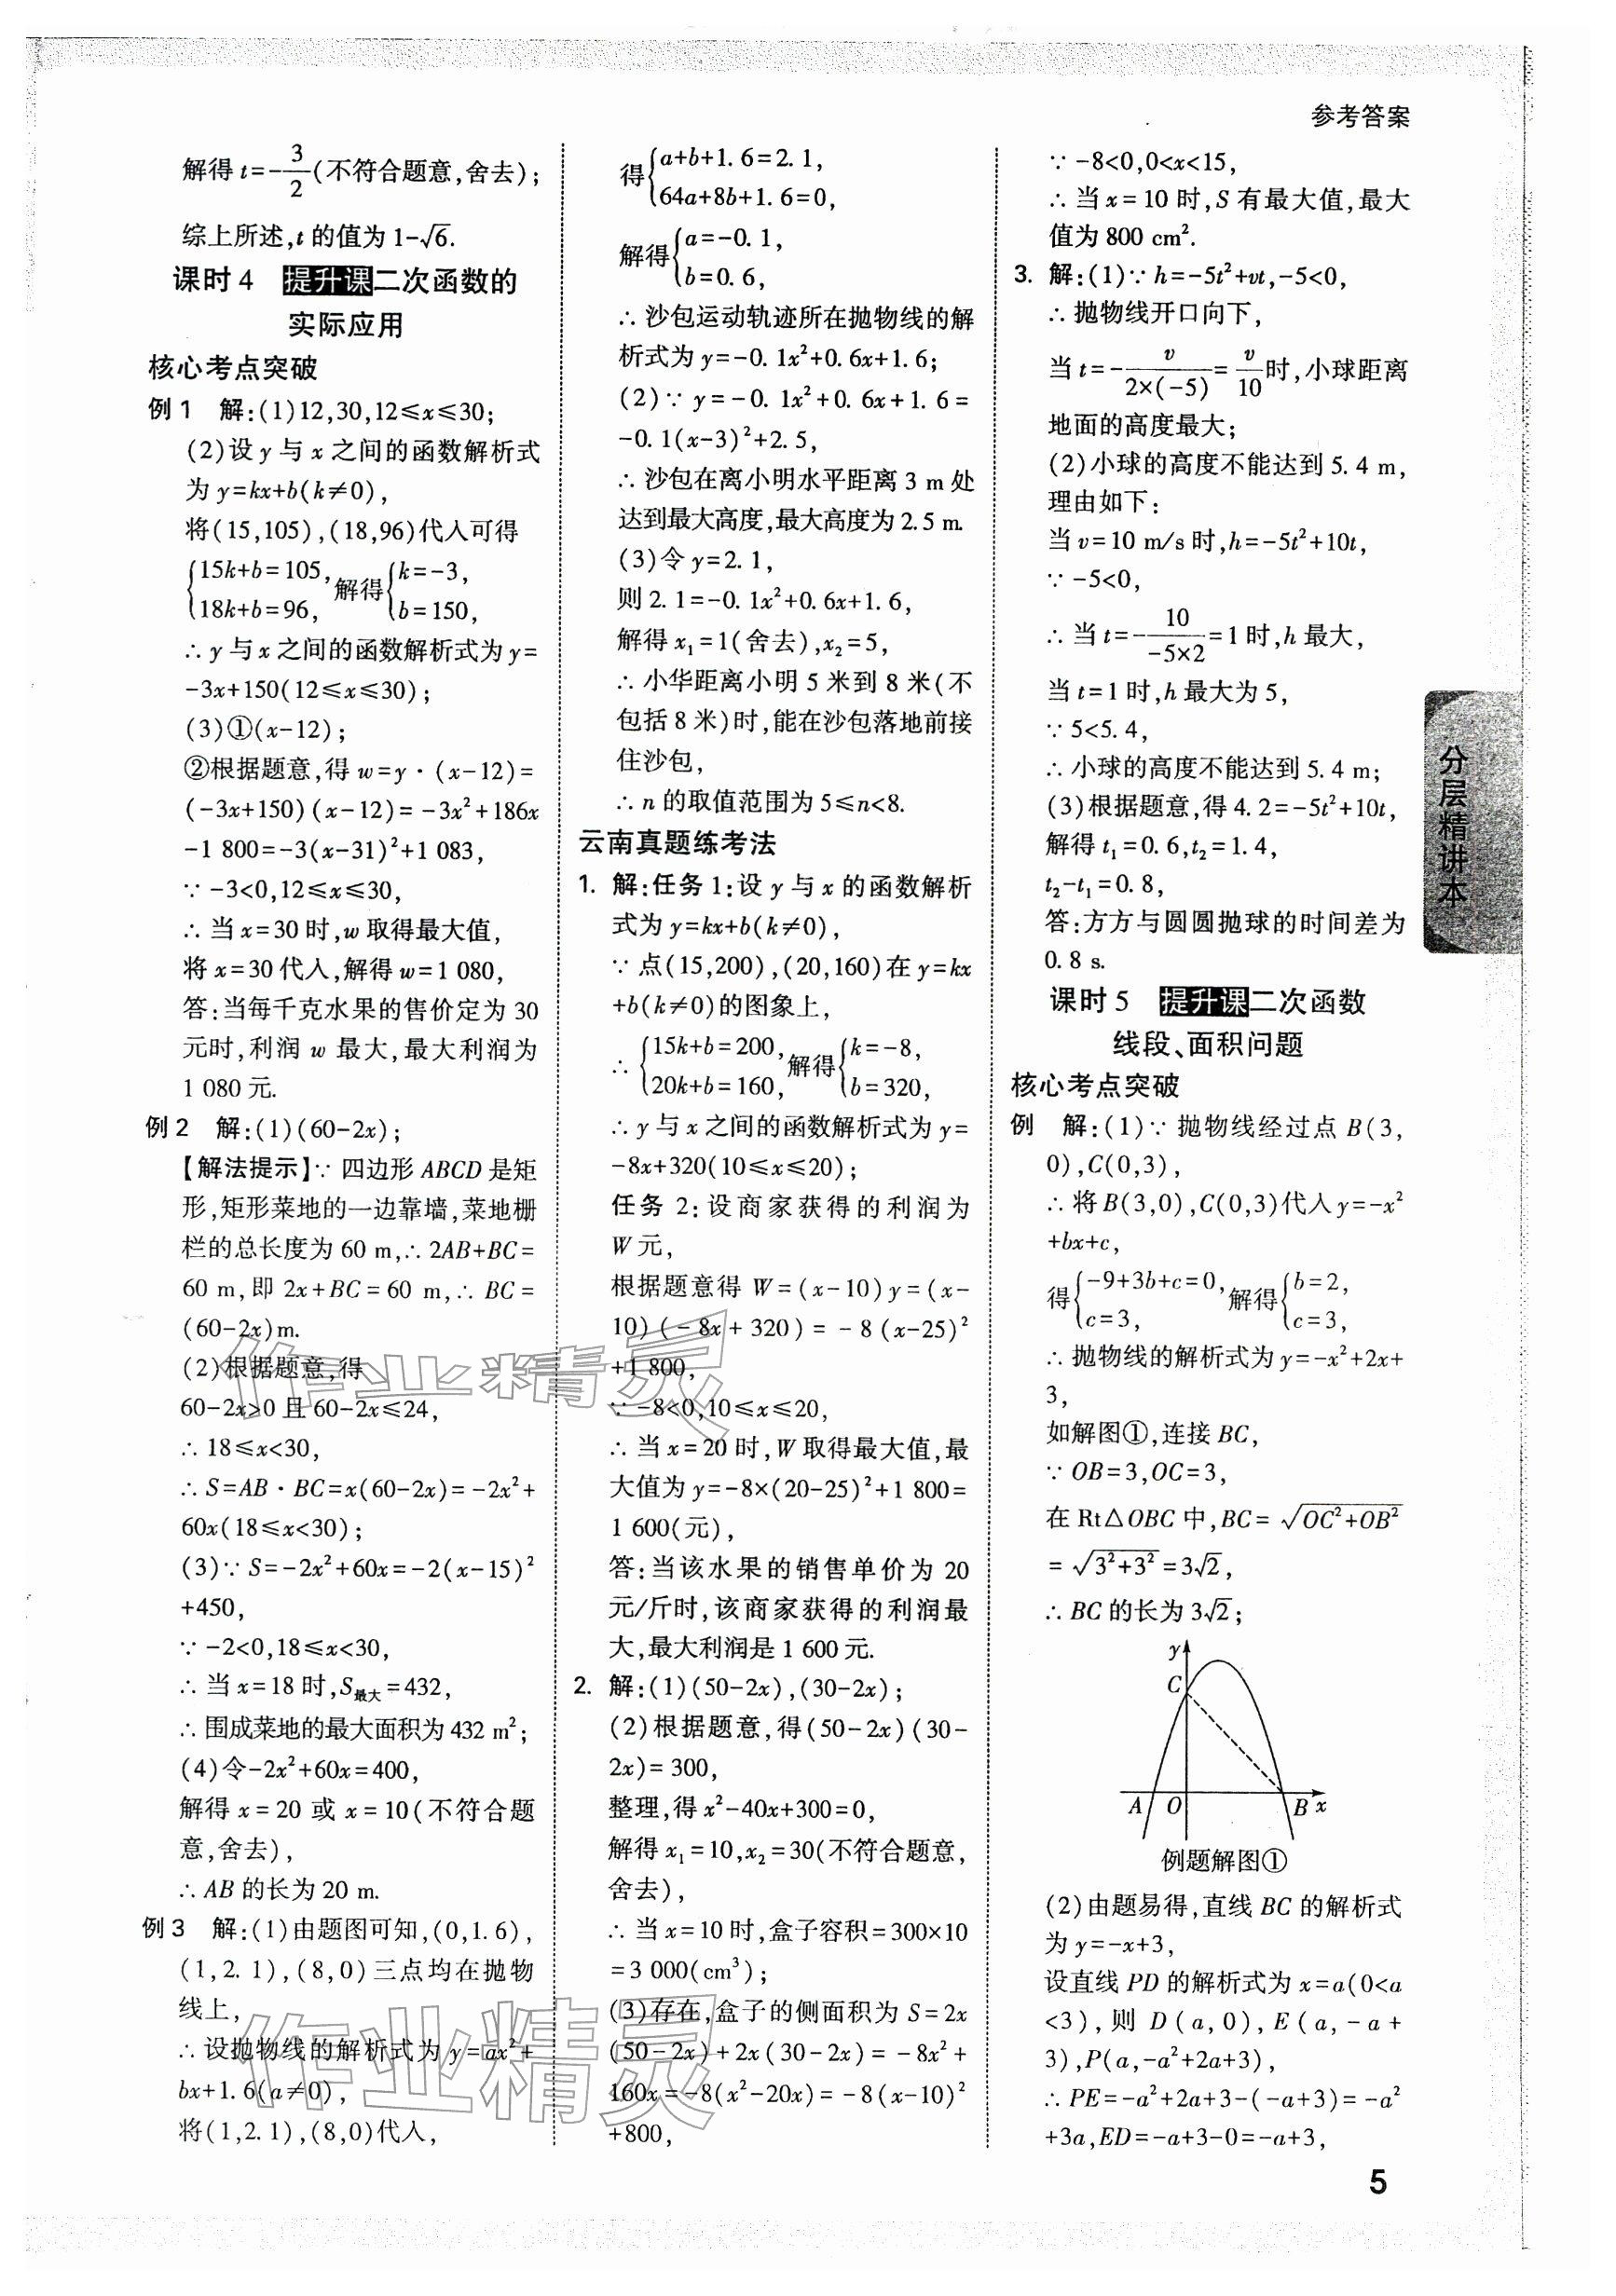 参考答案
解得t=-3/2(不符合题意,舍去);
综上所述,t的值为1-√6.
课时4 提升课 二次函数的
实际应用
核心考点突破
例1 解:(1)12,30,12≤x≤30;
(2)设y与x之间的函数解析式
为y=kx+b(k≠0),
将(15,105),(18,96)代入可得
{15k+b=105, 18k+b=96, 解得{k=-3, b=150,
∴y与x之间的函数解析式为y=
-3x+150(12≤x≤30);
(3)①(x-12);
②根据题意,得w=y·(x-12)=
(-3x+150)(x-12)=-3x²+186x
-1 800=-3(x-31)²+1 083,
∵-3<0,12≤x≤30,
∴当x=30时,w取得最大值,
将x=30代入,解得w=1 080,
答:当每千克水果的售价定为30
元时,利润w最大,最大利润为
1 080元.
例2 解:(1)(60-2x);
【解法提示】∵四边形ABCD是矩
形,矩形菜地的一边靠墙,菜地栅
栏的总长度为60 m,∴2AB+BC=
60 m,即2x+BC=60 m,∴BC=
(60-2x)m.
(2)根据题意,得
60-2x>0且60-2x≤24,
∴18≤x<30,
∴S=AB·BC=x(60-2x)=-2x²+
60x(18≤x<30);
(3)∵S=-2x²+60x=-2(x-15)²
+450,
∵-2<0,18≤x<30,
∴当x=18时,S最大=432,
∴围成菜地的最大面积为432 m²;
(4)令-2x²+60x=400,
解得x=20或x=10(不符合题
意,舍去),
∴AB的长为20 m.
例3 解:(1)由题图可知,(0,1.6),
(1,2.1),(8,0)三点均在抛物
线上,
∴设抛物线的解析式为y=ax²+
bx+1.6(a≠0),
将(1,2.1),(8,0)代入,
得{a+b+1.6=2.1, 64a+8b+1.6=0,
解得{a=-0.1, b=0.6,
∴沙包运动轨迹所在抛物线的解
析式为y=-0.1x²+0.6x+1.6;
(2)∵y=-0.1x²+0.6x+1.6=
-0.1(x-3)²+2.5,
∴沙包在离小明水平距离3 m处
达到最大高度,最大高度为2.5 m.
(3)令y=2.1,
则2.1=-0.1x²+0.6x+1.6,
解得x₁=1(舍去),x₂=5,
∴小华距离小明5米到8米(不
包括8米)时,能在沙包落地前接
住沙包,
∴n的取值范围为5≤n<8.
云南真题练考法
1. 解:任务1:设y与x的函数解析
式为y=kx+b(k≠0),
∵点(15,200),(20,160)在y=kx
+b(k≠0)的图象上,
∴{15k+b=200, 20k+b=160, 解得{k=-8, b=320,
∴y与x之间的函数解析式为y=
-8x+320(10≤x≤20);
任务2:设商家获得的利润为
W元,
根据题意得W=(x-10)y=(x-
10)(-8x+320)=-8(x-25)²
+1 800,
∵-8<0,10≤x≤20,
∴当x=20时,W取得最大值,最
大值为y=-8×(20-25)²+1 800=
1 600(元),
答:当该水果的销售单价为20
元/斤时,该商家获得的利润最
大,最大利润是1 600元.
2. 解:(1)(50-2x),(30-2x);
(2)根据题意,得(50-2x)(30-
2x)=300,
整理,得x²-40x+300=0,
解得x₁=10,x₂=30(不符合题意,
舍去),
∴当x=10时,盒子容积=300×10
=3 000(cm³);
(3)存在,盒子的侧面积为S=2x
(50-2x)+2x(30-2x)=-8x²+
160x=-8(x²-20x)=-8(x-10)²
+800,
∵-8<0,0<x<15,
∴当x=10时,S有最大值,最大
值为800 cm².
3. 解:(1)∵h=-5t²+vt,-5<0,
∴抛物线开口向下,
当t=-v/(2×(-5))=v/10时,小球距离
地面的高度最大;
(2)小球的高度不能达到5.4 m,
理由如下:
当v=10 m/s时,h=-5t²+10t,
∵-5<0,
∴当t=-10/(-5×2)=1时,h最大,
当t=1时,h最大为5,
∵5<5.4,
∴小球的高度不能达到5.4 m;
(3)根据题意,得4.2=-5t²+10t,
解得t₁=0.6,t₂=1.4,
t₂-t₁=0.8,
答:方方与圆圆抛球的时间差为
0.8 s.
课时5 提升课 二次函数
线段、面积问题
核心考点突破
例 解:(1)∵抛物线经过点B(3,
0),C(0,3),
∴将B(3,0),C(0,3)代入y=-x²
+bx+c,
得{-9+3b+c=0, c=3, 解得{b=2, c=3,
∴抛物线的解析式为y=-x²+2x+
3,
如解图①,连接BC,
∵OB=3,OC=3,
在Rt△OBC中,BC=√(OC²+OB²)
=√(3²+3²)=3√2,
∴BC的长为3√2;
y
C
A O B x
例题解图①
(2)由题易得,直线BC的解析式
为y=-x+3,
设直线PD的解析式为x=a(0<a
<3),则D(a,0),E(a,-a+
3),P(a,-a²+2a+3),
∴PE=-a²+2a+3-(-a+3)=-a²
+3a,ED=-a+3-0=-a+3,
分层精讲本
5
作业精灵
作业精灵